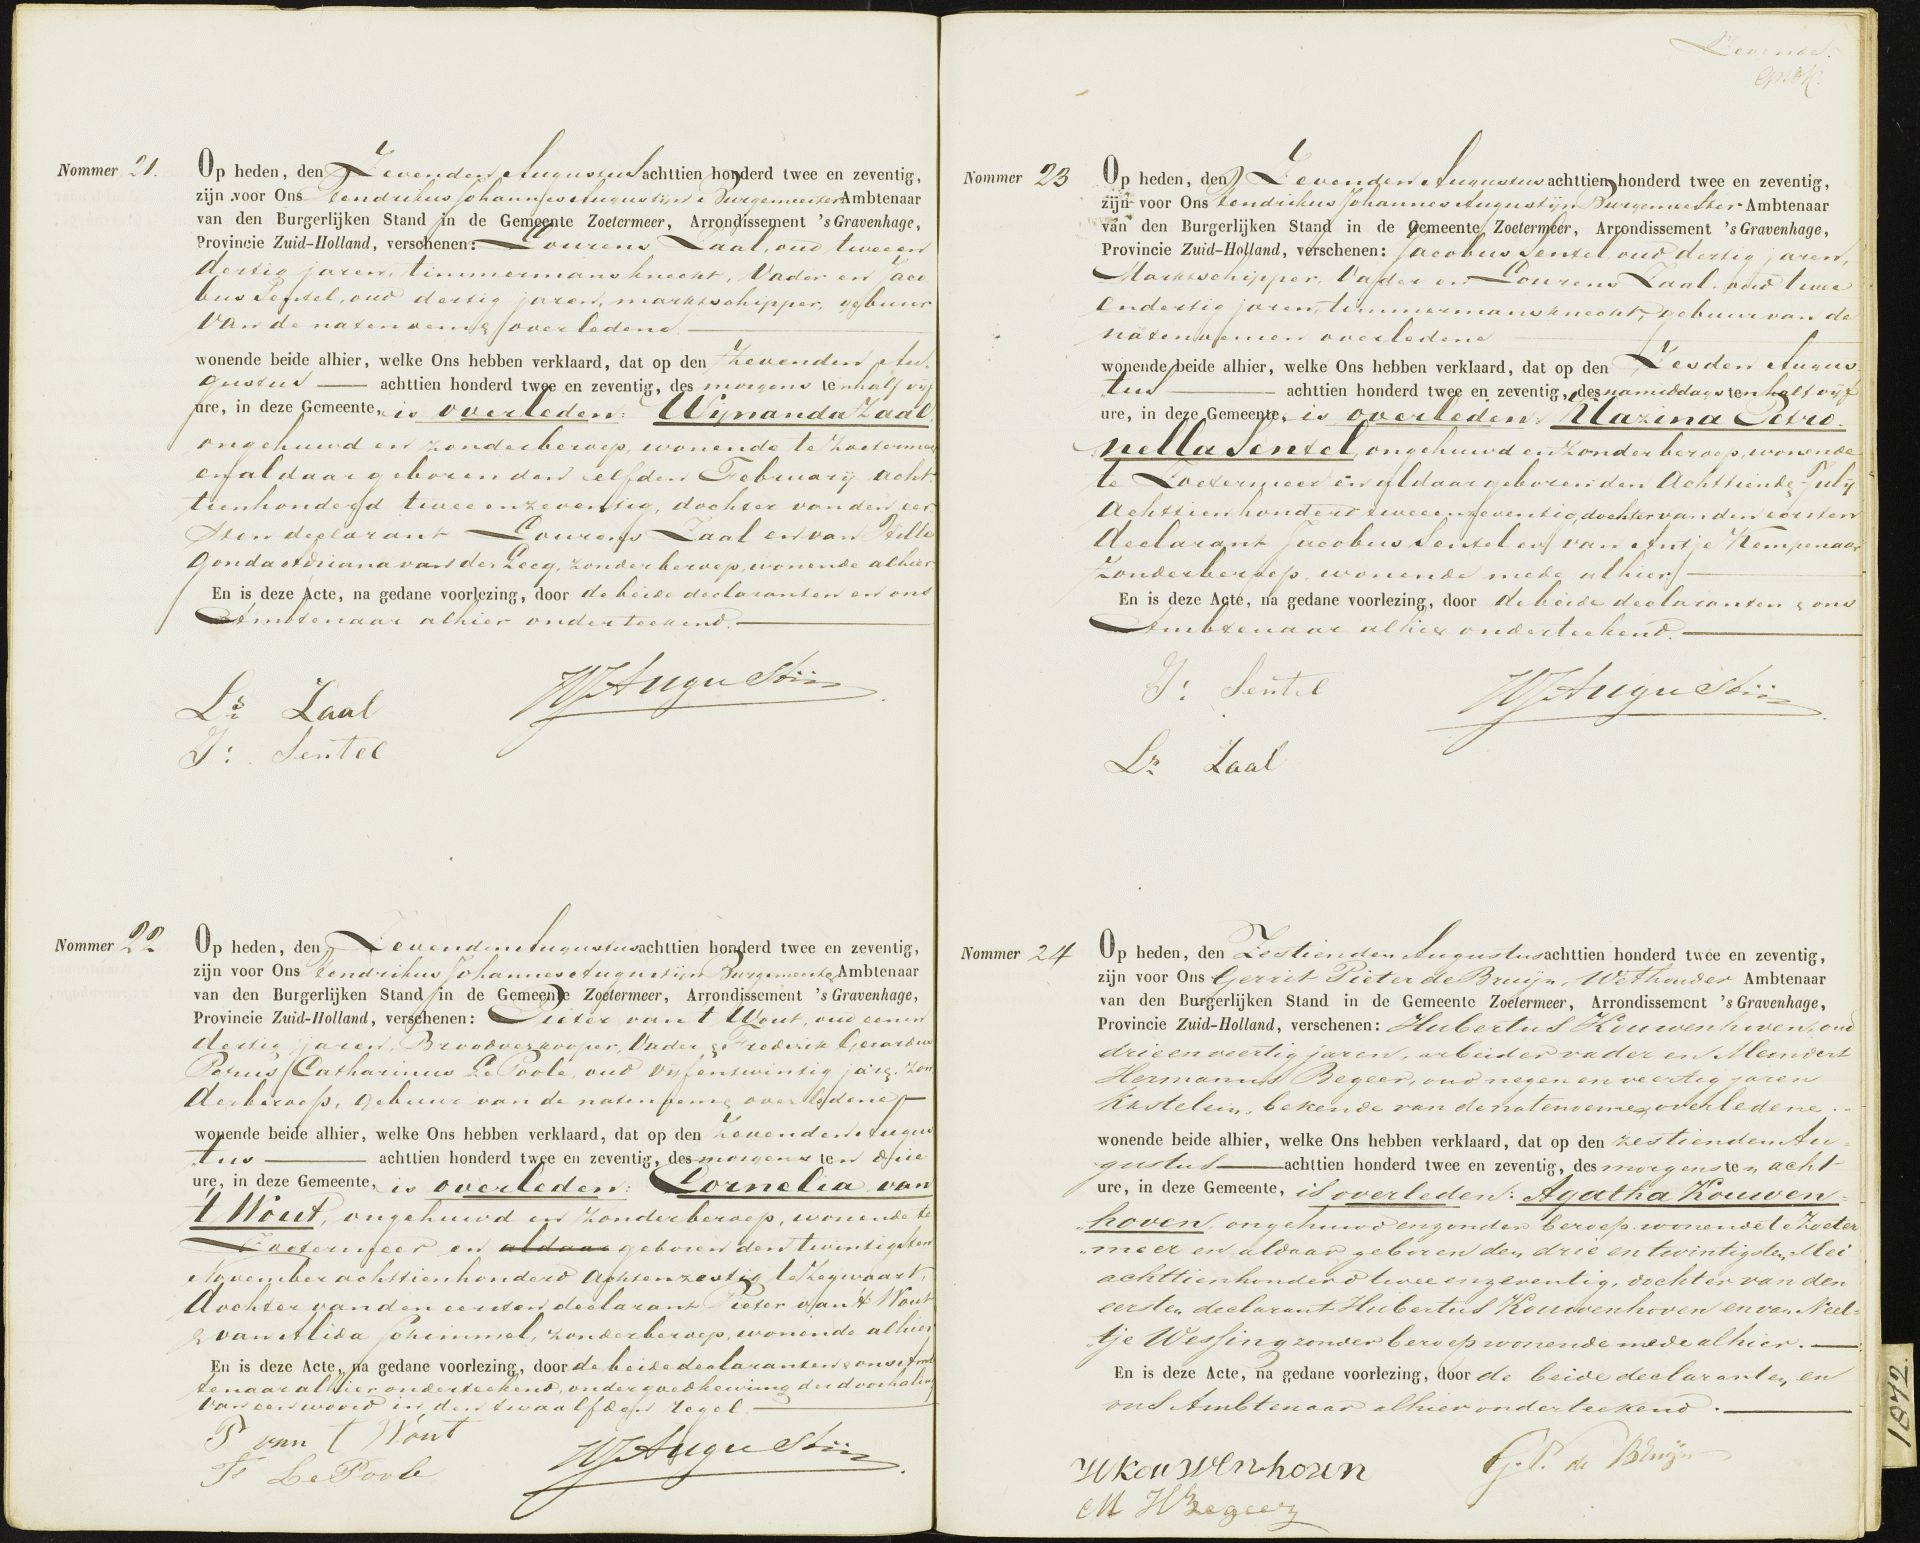 Nommer 21.
Op heden, den Zevenden Augustus achttien honderd twee en zeventig,
zijn voor Ons Hendrikus Johannes Augustijn Burgemeester Ambtenaar
van den Burgerlijken Stand in de Gemeente Zoetermeer, Arrondissement 's Gravenhage,
Provincie Zuid-Holland, verschenen: Lourens Zaal, oud twee en
dertig jaren, timmermansknecht, Vader en Jaco
bus Sentel, oud dertig jaren, marktschipper, gebuur
van de natenoemen overledene
wonende beide alhier, welke Ons hebben verklaard, dat op den Zevenden Au-
gustus achttien honderd twee en zeventig, des morgens ten half vijf
ure, in deze Gemeente, is overleden: Wijnanda Zaal.
ongehuwd en zonder beroep, wonende te Zoetermeer
en aldaar geboren den elfden February acht
tienhonderd twee en zeventig, dochter van den eer
sten declarant Lourens Zaal en van Hille
gonda Adriana van der Leeg, zonder beroep, wonende alhier
En is deze Acte, na gedane voorlezing, door de beide declaranten en ons
Ambtenaar alhier onderteekend.
Ls Zaal
HJAugustijn
J: Sentel
Nommer 22
Op heden, den Zevenden Augustus achttien honderd twee en zeventig,
zijn voor Ons Hendrikus Johannes Augustijn Burgemeester Ambtenaar
van den Burgerlijken Stand in de Gemeente Zoetermeer, Arrondissement 's Gravenhage,
Provincie Zuid-Holland, verschenen: Pieter van 't Wout, oud een en
dertig jaren, Broodverkooper, Vader & Frederik Gerardus
Petrus Catharinus Le Poole, oud vijfentwintig jaren, zon
der beroep, gebuur van de natenoemen overledene
wonende beide alhier, welke Ons hebben verklaard, dat op den Zevenden Augus
tus achttien honderd twee en zeventig, des morgens ten drie
ure, in deze Gemeente, is overleden: Cornelia van
't Wout, ongehuwd en zonder beroep, wonende te
Zoetermeer en aldaar geboren den twintigsten
November achttienhonderd achtenzestig te Zegwaart,
dochter van den eersten declarant Pieter van 't Wout
& van Alida Schimmel, zonder beroep, wonende alhier
En is deze Acte, na gedane voorlezing, door de beide declaranten & ons Amb
tenaar alhier onderteekend, onder goedkeuring der doorhaling
van een woord in den twaalfden regel.
P van t Wout
HJAugustijn
F LePoole
Zevende
Nommer 23
Op heden, den Zevenden Augustus achttien honderd twee en zeventig,
zijn voor Ons Hendrikus Johannes Augustijn Burgemeester Ambtenaar
van den Burgerlijken Stand in de Gemeente Zoetermeer, Arrondissement 's Gravenhage,
Provincie Zuid-Holland, verschenen: Jacobus Sentel, oud dertig jaren,
Marktschipper, Vader en Lourens Zaal, oud twee
en dertig jaren, timmermansknecht, gebuur van de
natenoemen overledene
wonende beide alhier, welke Ons hebben verklaard, dat op den Zesden Augus
tus achttien honderd twee en zeventig, des namiddags ten half vijf
ure, in deze Gemeente, is overleden: Klazina Petro
nella Sentel, ongehuwd en zonder beroep, wonende
te Zoetermeer en aldaar geboren den Achttienden July
Achttienhonderd tweeenzeventig, dochter van den eersten
declarant Jacobus Sentel en van Antje Kempenaar
zonder beroep, wonende mede alhier
En is deze Acte, na gedane voorlezing, door de beide declaranten & ons
Ambtenaar alhier onderteekend.
J: Sentel
HJAugustijn
Ls Zaal
Nommer 24
Op heden, den Zestienden Augustus achttien honderd twee en zeventig,
zijn voor Ons Gerrit Pieter de Bruijn, Wethouder Ambtenaar
van den Burgerlijken Stand in de Gemeente Zoetermeer, Arrondissement 's Gravenhage,
Provincie Zuid-Holland, verschenen: Hubertus Kouwenhoven, oud
drieenveertig jaren, arbeider vader en Meindert
Hermanus Begeer, oud negen en veertig jaren
kastelein, bekende van de natenoemen overledene.
wonende beide alhier, welke Ons hebben verklaard, dat op den zestienden Au-
gustus achttien honderd twee en zeventig, des morgens ten acht
ure, in deze Gemeente, is overleden: Agatha Kouwen-
hoven, ongehuwd en zonder beroep wonende te Zoeter
meer en aldaar geboren den drie en twintigsten Mei
achttienhonderd twee en zeventig, dochter van den
eersten declarant Hubertus Kouwenhoven en van Neel-
tje Wessing zonder beroep wonende mede alhier.
En is deze Acte, na gedane voorlezing, door de beide declaranten en
ons Ambtenaar alhier onderteekend.
HKouwenhoven
G. P. de Bruijn
M H Begeer
1872.